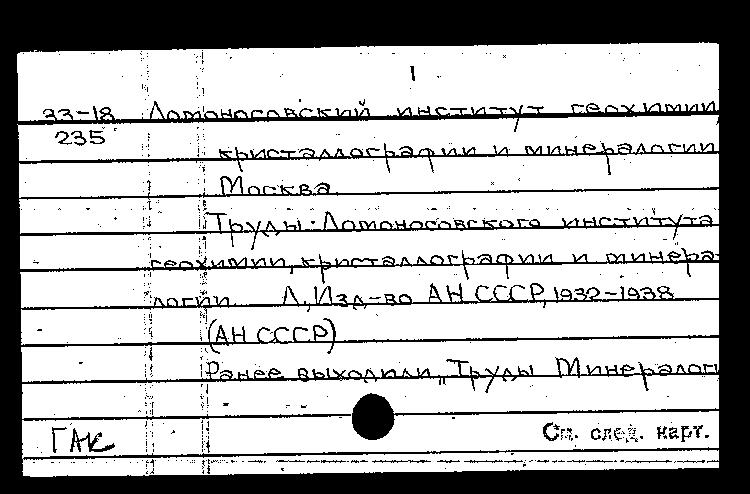 1
33-18 Ломоносовский институт геохимии,
235
кристаллографии и минералогии
Москва.
Труды Ломоносовского института
геохимии, кристаллографии и минера-
логии. Л, Изд-во АН СССР, 1932-1938
(АН СССР)
Ранее выходили „Труды Минералог
ГАК
См. след. карт.